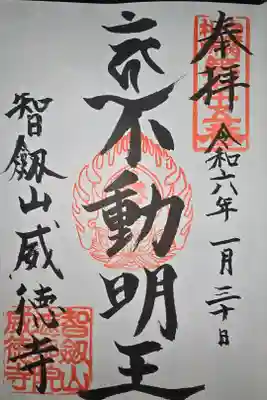 奉拝
令和六年一月三十日
不動明王
智剱山威徳寺
智剱山
威徳寺